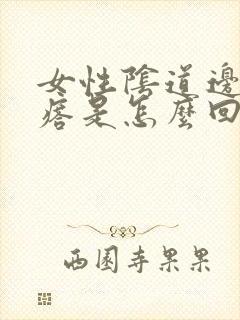 女性陰道邊
痞是怎麼回
西園寺果果